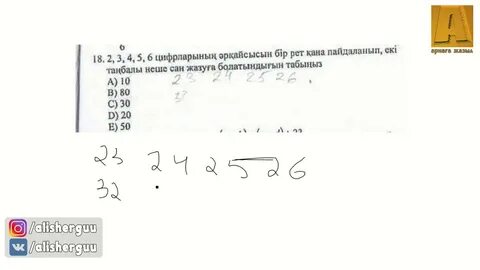 6
18. 2, 3, 4, 5, 6 цифрларының әрқайсысын бір рет қана пайдаланып, екі
таңбалы неше сан жазуға болатындығын табыңыз
A) 10
23 24 25 26 .
B) 80
C) 30
D) 20
E) 50
23 24 25 26
32
A
арнаға жазыл
@alisherguu
@alisherguu